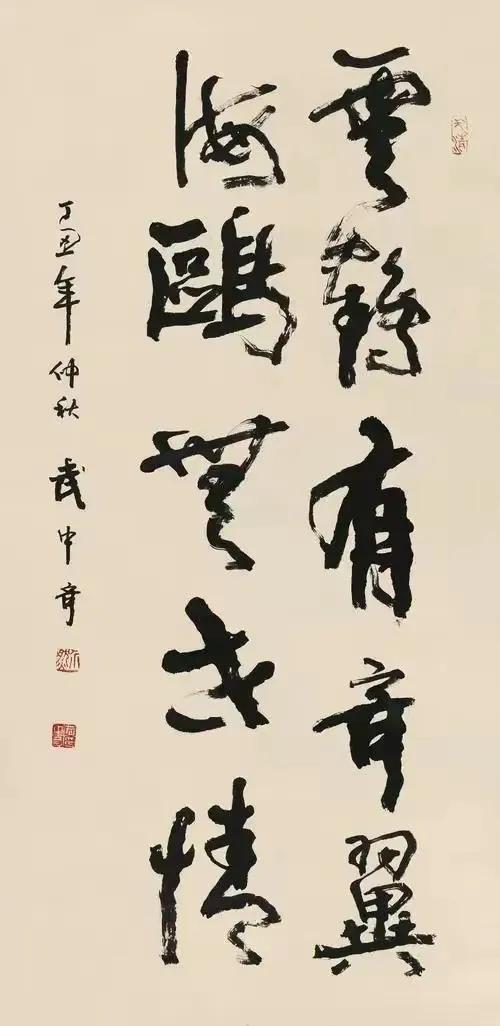 雲鶴有奇翼
海鷗無世情
丁丑年仲秋 武中奇